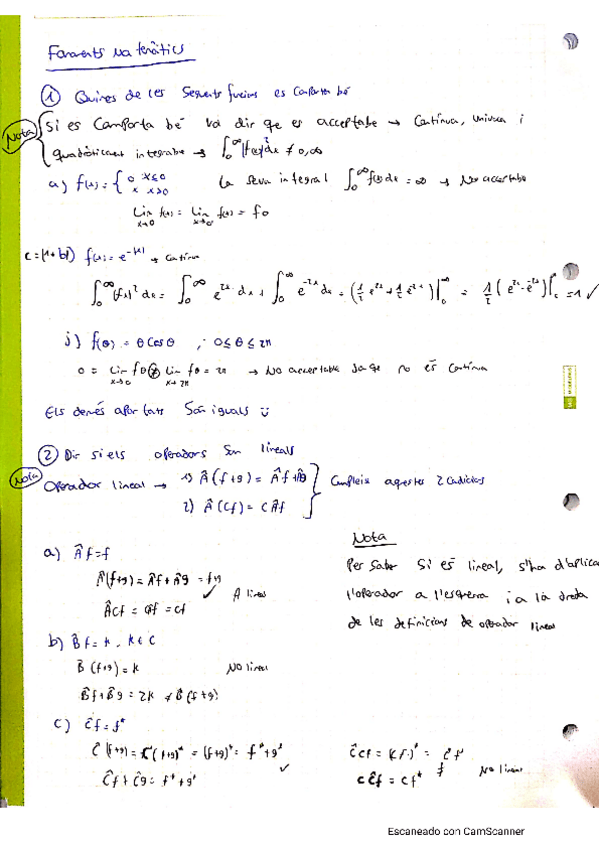 Fonaments Matemàtics
① Quines de les següents funcions es comporta bé
Nota
Si es comporta bé va dir que es acceptable → Contínua, unívoca i
quadràticament integrable → ∫₀^∞ |f(x)|² dx ≠ 0, ∞
a) f(x) = { 0 x≤0
x x>0
La seva integral ∫₀^∞ f(x) dx = ∞ → No acceptable
Lim x→0 f(x) = Lim x→0 f(x) = f0
b) f(x) = e^-|x| → Contínua
j) f(θ) = θ cos θ , 0 ≤ θ ≤ 2π
→ No acceptable ja que no es contínua
Els demés apartats són iguals
② Dir si els operadors són lineals
Nota
Operador lineal → 1) Â(f+g) = Âf + Âg
2) Â(cf) = cÂf
Cumpleix aquestes 2 condicions
a) Âf = f
Â(f+g) = Âf + Âg = f+g ✓
Âcf = cf = cf
A lineal
Nota
Per saber si és lineal, s'ha d'aplicar
l'operador a l'esquerra i a la dreta
de les definicions de operador lineal
b) B̂f = k, k ∈ C
B̂(f+g) = k
No lineal
B̂f + B̂g = 2k ≠ B̂(f+g)
c) Ĉf = f*
Ĉ(f+g) = (f+g)* = f* + g*
Ĉf + Ĉg = f* + g* ✓
cĈf = cf*
No lineal
Escaneado con CamScanner